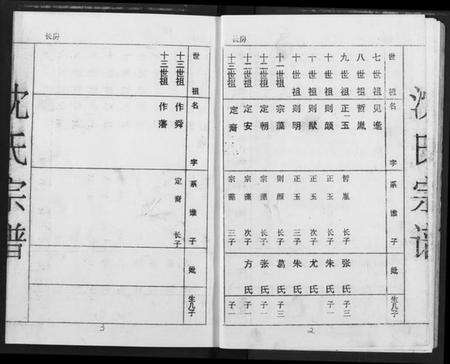 长房
世祖名 字 系谁子 妣 生几子
七世祖 见逵
八世祖 哲胤 张氏 子三
九世祖 正玉 哲胤 长子 朱氏 子一
十世祖 则颜 正玉 长子
十世祖 则猷 正玉 次子 尤氏
十世祖 则明 正玉 三子 朱氏
十一世祖 宗藻 则颜 长子 葛氏 子三
十二世祖 定朝 宗藻 长子 张氏 子一
十二世祖 定安 宗藻 次子 方氏 子一
十二世祖 定裔 宗藻 三子
2
沈氏宗谱
长房
世祖名 字 系谁子 妣 生几子
十三世祖 作舜 定裔 长子
十三世祖 作藩
3
沈氏宗谱